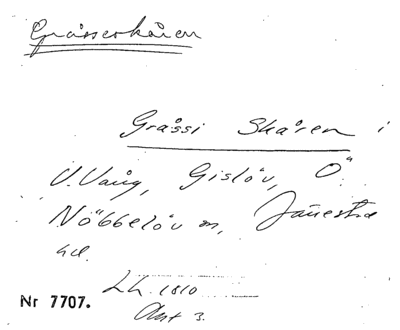 Gråsserskåren
Gråssi Skåren i
V. Vång, Gislöv, Ö.
Nöbbelöv m, Järrestad
hd.
Lh. 1810
Akt 3.
Nr 7707.